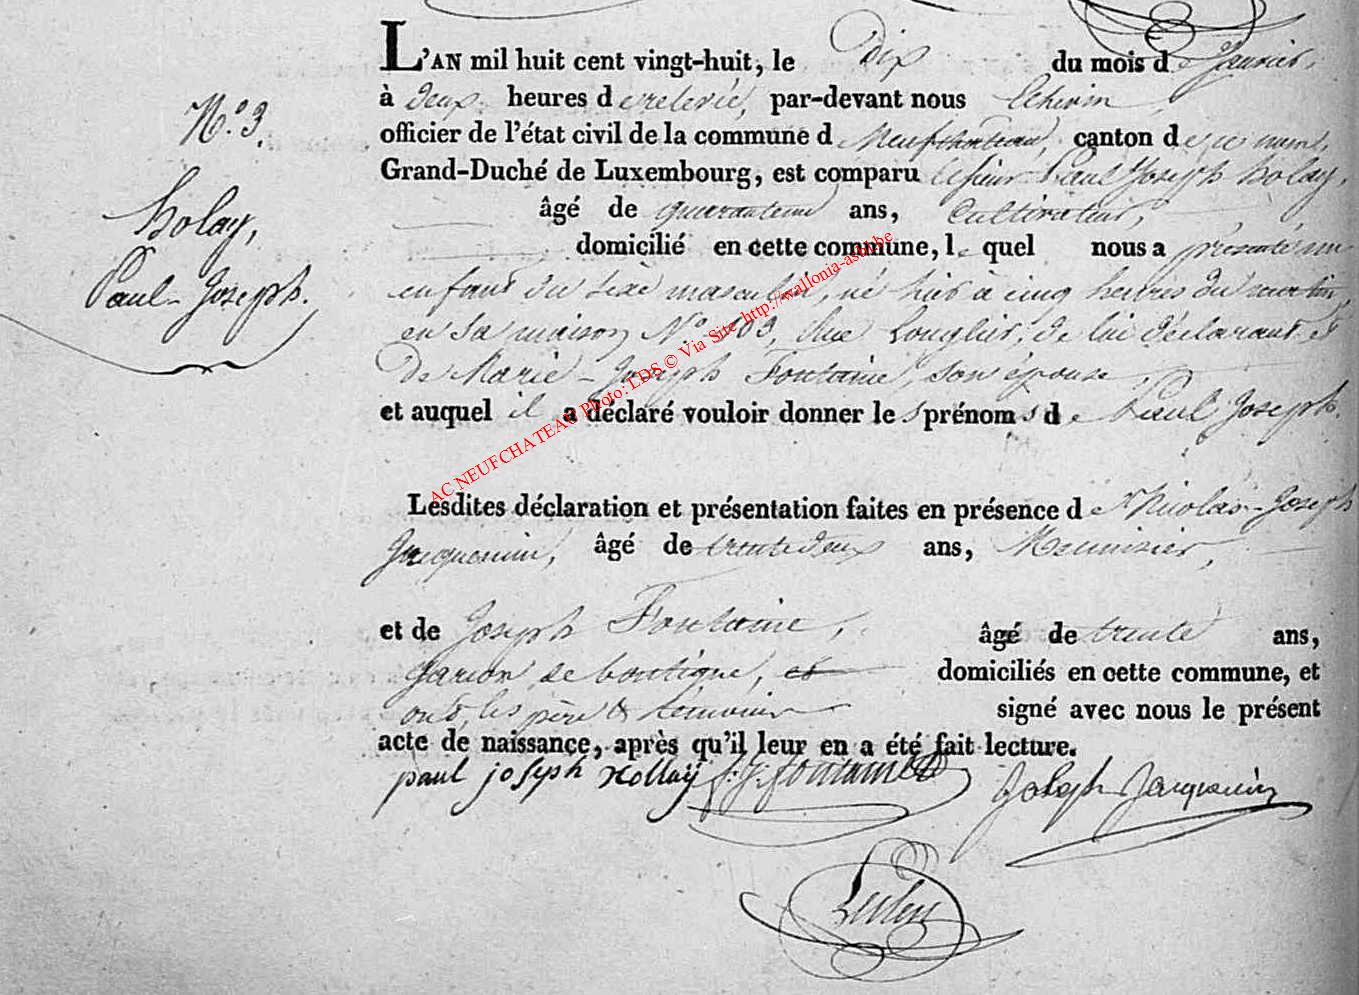 N.º 3.
Holay,
Paul-Joseph.
L'AN mil huit cent vingt-huit, le Dix du mois de Janvier,
à deux heures de relevée, par-devant nous Echevin
officier de l'état civil de la commune de Neufchateau, canton de ce nom,
Grand-Duché de Luxembourg, est comparu le sieur Paul Joseph Holay,
âgé de quarante un ans, Cultivateur,
domicilié en cette commune, lequel nous a présenté un
enfant du sexe masculin, né hier à cinq heures du matin,
en sa maison N.º 103, Rue Longlier, de lui déclarant et
de Marie-Joseph Fontaine son épouse
et auquel il a déclaré vouloir donner les prénoms de Paul Joseph.
Lesdites déclaration et présentation faites en présence de Nicolas-Joseph
Jacquemin, âgé de trente deux ans, Menuisier,
et de Joseph Fontaine, âgé de trente ans,
garcon de boutique, et domiciliés en cette commune, et
ont, les père & témoins signé avec nous le présent
acte de naissance, après qu'il leur en a été fait lecture.
paul joseph Hollaÿ f: J: fontaine Joseph Jacquemin
AC NEUFCHATEAU Photo: LDS © Via Site http://wallonia-asbl.be